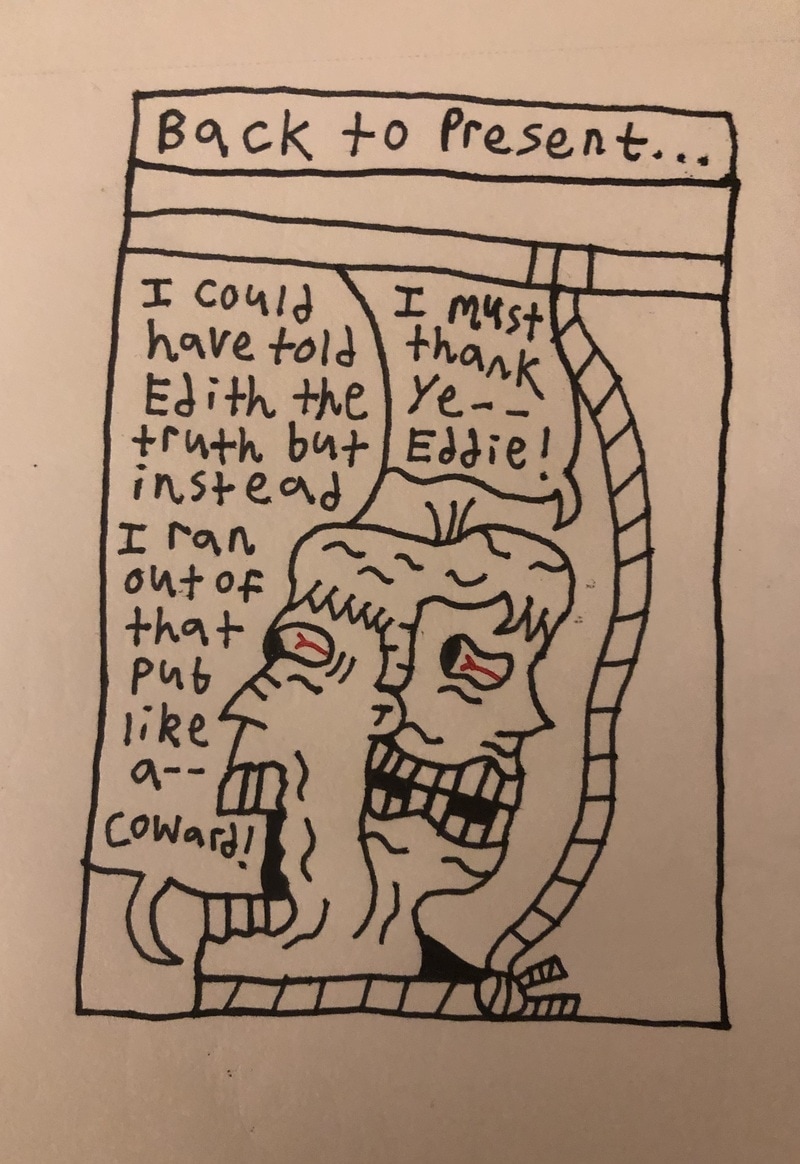 Back to Present...
I could
have told
Edith the
truth but
instead
I ran
out of
that
pub
like
a--
Coward!
I must
thank
Ye--
Eddie!